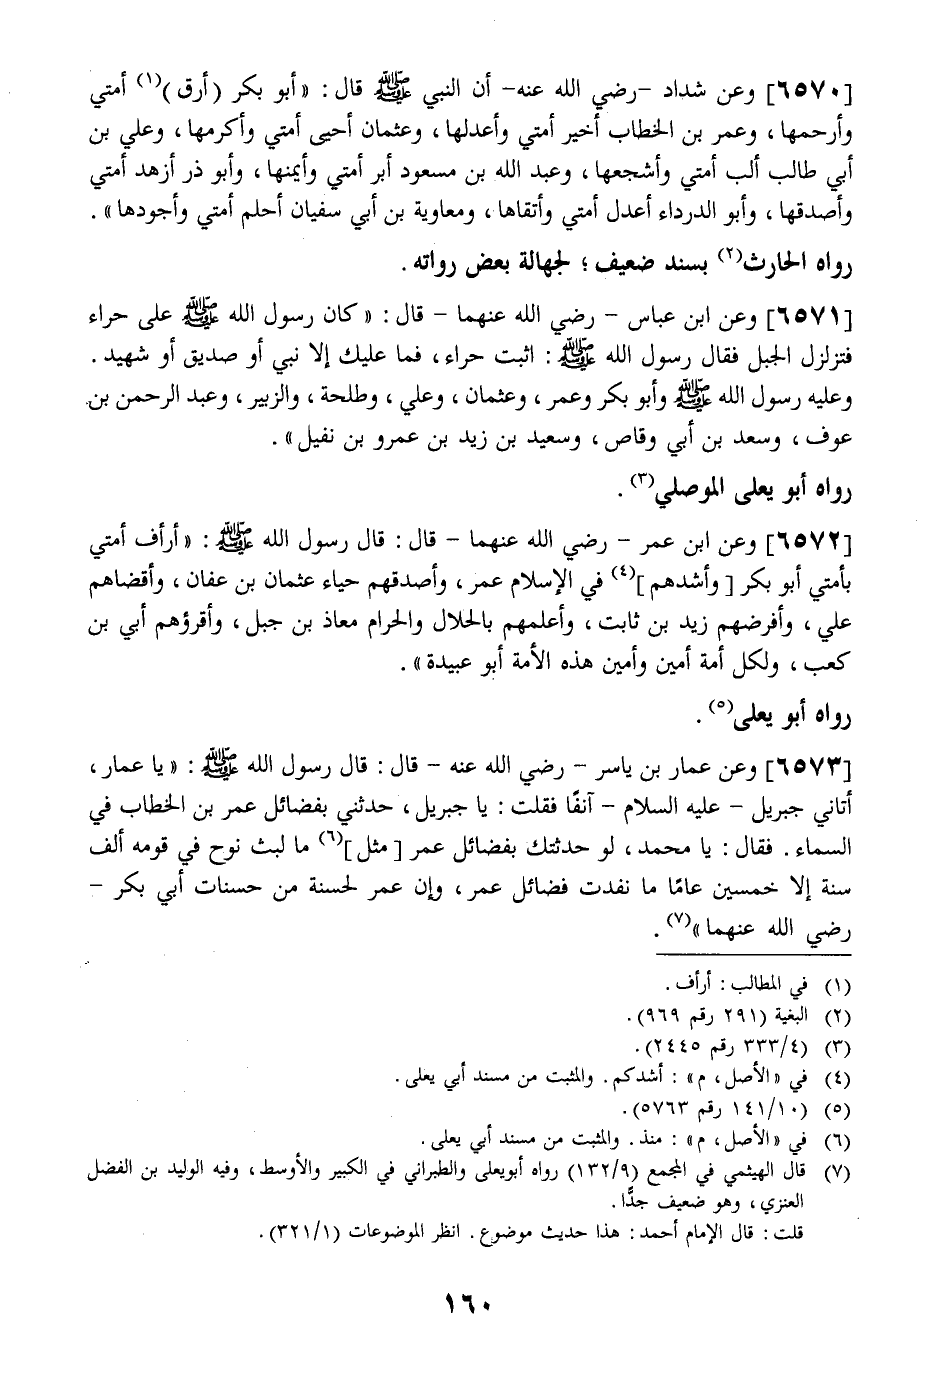 [٦٥٧٠] وعن شداد -رضي الله عنه- أن النبي ﷺ قال : « أبو بكر (أرق)(١) أمتي
وأرحمها ، وعمر بن الخطاب أخير أمتي وأعدلها ، وعثمان أحيى أمتي وأكرمها ، وعلي بن
أبي طالب ألب أمتي وأشجعها ، وعبد الله بن مسعود أبر أمتي وأيمنها ، وأبو ذر أزهد أمتي
وأصدقها ، وأبو الدرداء أعدل أمتي وأتقاها ، ومعاوية بن أبي سفيان أحلم أمتي وأجودها » .
رواه الحارث(٢) بسند ضعيف ؛ لجهالة بعض رواته .
[٦٥٧١] وعن ابن عباس - رضي الله عنهما - قال : « كان رسول الله ﷺ على حراء
فتزلزل الجبل فقال رسول الله ﷺ : اثبت حراء ، فما عليك إلا نبي أو صديق أو شهيد .
وعليه رسول الله ﷺ وأبو بكر وعمر ، وعثمان ، وعلي ، وطلحة ، والزبير ، وعبد الرحمن بن
عوف ، وسعد بن أبي وقاص ، وسعيد بن زيد بن عمرو بن نفيل » .
رواه أبو يعلى الموصلي(٣) .
[٦٥٧٢] وعن ابن عمر - رضي الله عنهما - قال : قال رسول الله ﷺ : « أرأف أمتي
بأمتي أبو بكر [ وأشدهم ](٤) في الإسلام عمر ، وأصدقهم حياء عثمان بن عفان ، وأقضاهم
علي ، وأفرضهم زيد بن ثابت ، وأعلمهم بالحلال والحرام معاذ بن جبل ، وأقرؤهم أبي بن
كعب ، ولكل أمة أمين وأمين هذه الأمة أبو عبيدة » .
رواه أبو يعلى(٥) .
[٦٥٧٣] وعن عمار بن ياسر - رضي الله عنه - قال : قال رسول الله ﷺ : « يا عمار ،
أتاني جبريل - عليه السلام - آنفًا فقلت : يا جبريل ، حدثني بفضائل عمر بن الخطاب في
السماء . فقال : يا محمد ، لو حدثتك بفضائل عمر [ مثل ](٦) ما لبث نوح في قومه ألف
سنة إلا خمسين عامًا ما نفدت فضائل عمر ، وإن عمر لحسنة من حسنات أبي بكر -
رضي الله عنهما »(٧) .
(١) في المطالب : أرأف .
(٢) البغية (٢٩١ رقم ٩٦٩) .
(٣) (٣٣٣/٤ رقم ٢٤٤٥) .
(٤) في « الأصل ، م » : أشدكم . والمثبت من مسند أبي يعلى .
(٥) (١٤١/١٠ رقم ٥٧٦٣) .
(٦) في « الأصل ، م » : منذ . والمثبت من مسند أبي يعلى .
(٧) قال الهيثمي في المجمع (١٣٢/٩) رواه أبويعلى والطبراني في الكبير والأوسط ، وفيه الوليد بن الفضل
العنزي ، وهو ضعيف جدًّا .
قلت : قال الإمام أحمد : هذا حديث موضوع . انظر الموضوعات (٣٢١/١) .
١٦٠